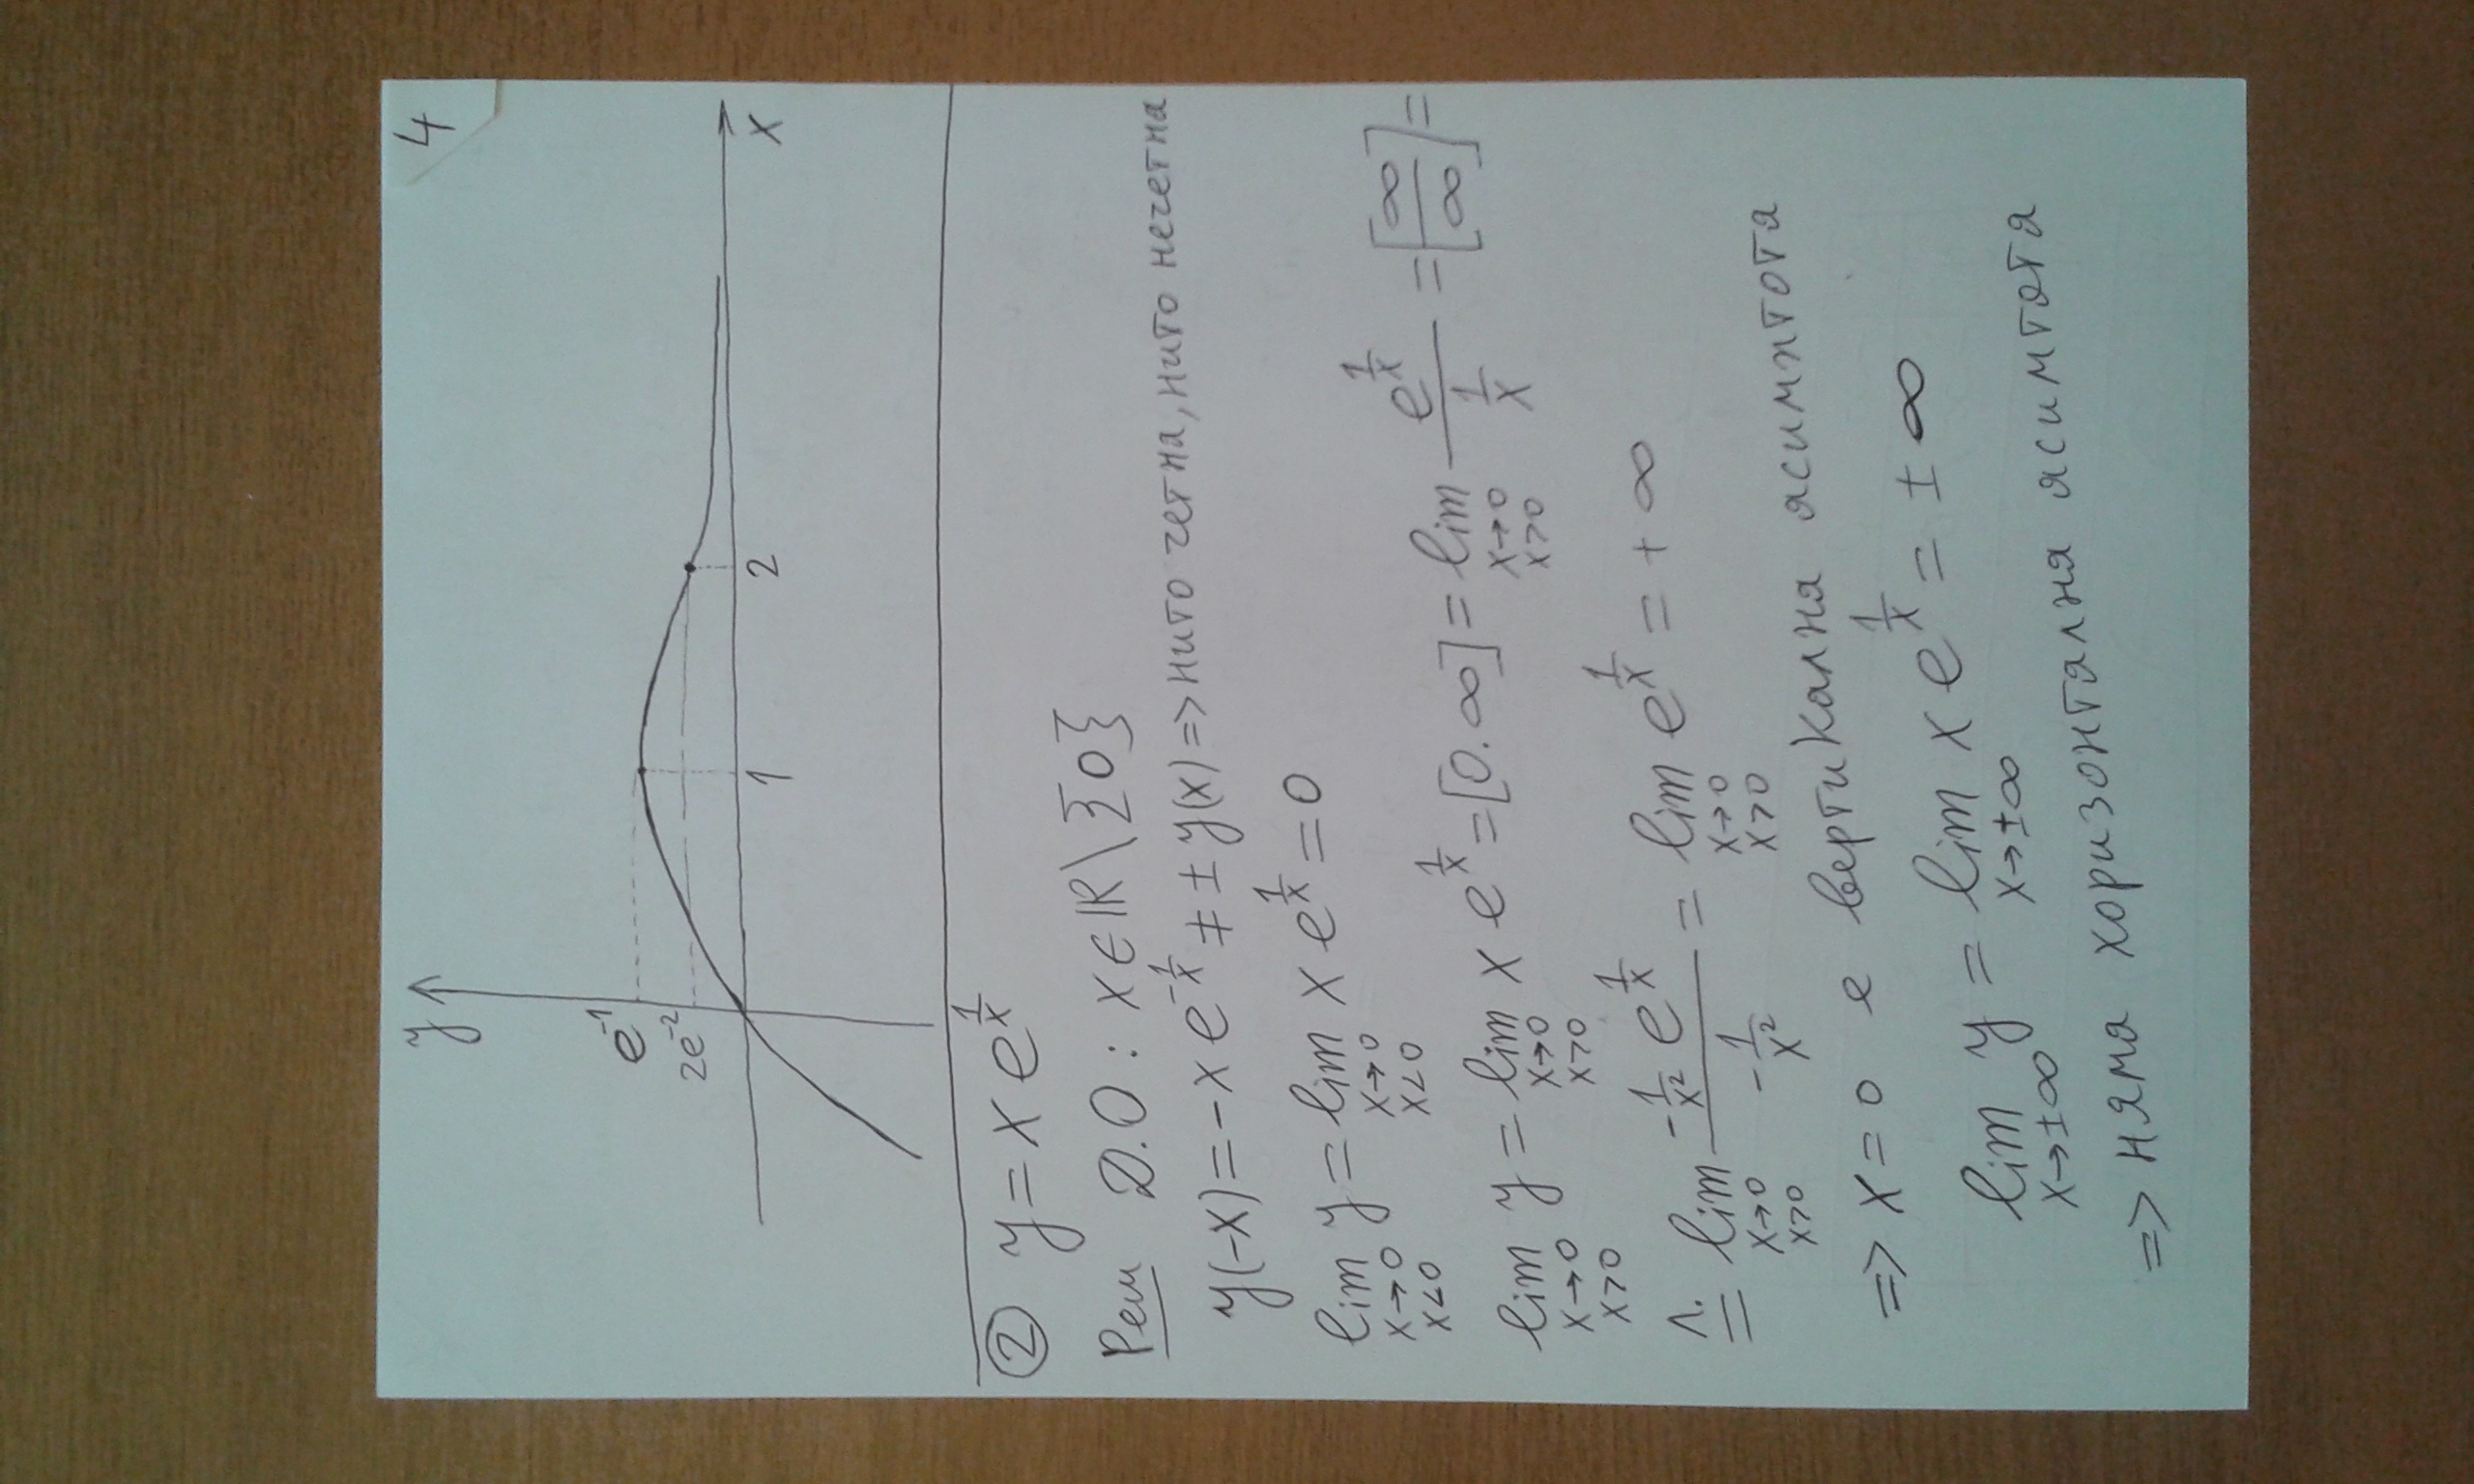 4
y
e⁻¹
2e⁻²
1 2 x
② y = x e^(1/x)
Реш D.O : x ∈ ℝ \ {0}
y(-x) = -x e^(-1/x) ≠ ± y(x) => нито четна, нито нечетна
lim_(x→0, x<0) y = lim_(x→0, x<0) x e^(1/x) = 0
lim_(x→0, x>0) y = lim_(x→0, x>0) x e^(1/x) = [0.∞] = lim_(x→0, x>0) e^(1/x) / (1/x) = [∞/∞] =
Л. = lim_(x→0, x>0) (-1/x² e^(1/x)) / (-1/x²) = lim_(x→0, x>0) e^(1/x) = + ∞
=> x = 0 е вертикална асимптота
lim_(x→±∞) y = lim_(x→±∞) x e^(1/x) = ± ∞
=> няма хоризонтална асимтота